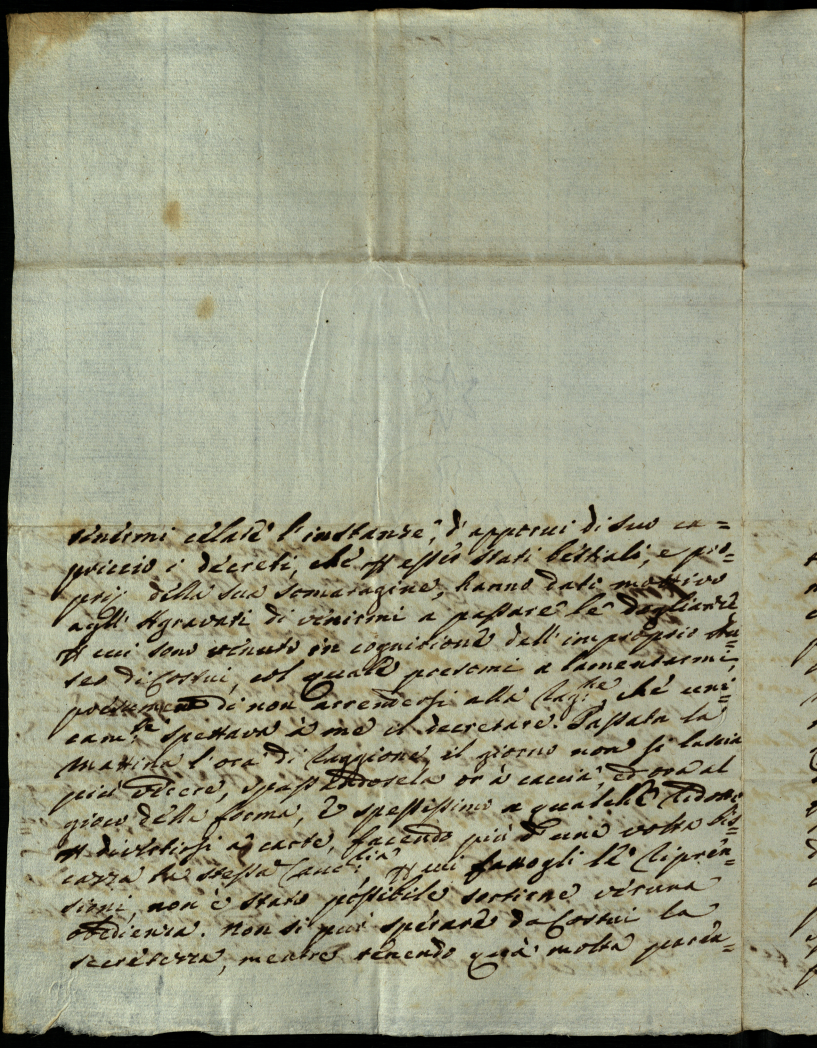 tenermi celate l'instanze, d'apporvi di suo ca=
priccio i decreti, che per esser stati bestiali, e pro=
prij della sua somaragine, hanno dati motivo
agl' Agravati di venirmi a passare le doglianze
per cui sono venuto in cognizione dell'improprio
di Costui, col quale presomi a lamentarmi,
di non arrendersi alla che uni=
cam.te spettava à me il decretare. Passata la
mattina l'ora di Raggione, il giorno non si lascia
più vedere, spassandosela or à caccia, ed ora al
gioco della forma, e spessissimo a qualche Ridotto
per divertirsi a carte, facendo più d'una volta bis=
cazza la stessa Canc.ria, per cui fattogli le ripren=
sioni, non è stato possibile sortirne veruna
obedienza. Non si può sperare da Costui la
secretezza, mentre tenendo quà molta paren=